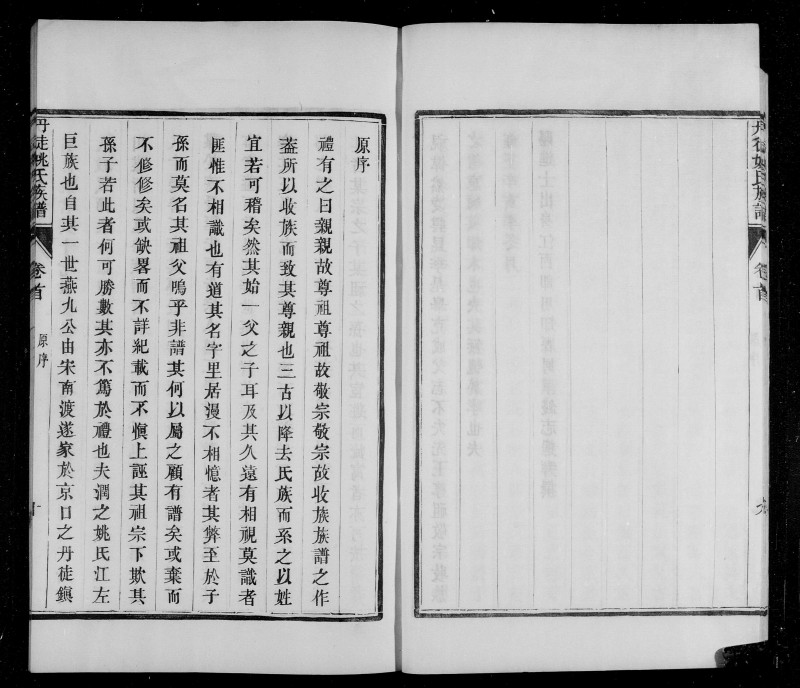 丹徒姚氏族譜
卷首
九
原序
禮有之曰親親故尊祖尊祖故敬宗敬宗故收族族譜之作
葢所以收族而致其尊親也三古以降去氏族而系之以姓
宜若可稽矣然其始一父之子耳及其久遠有相視莫識者
匪惟不相識也有道其名字里居漫不相憶者其弊至於子
孫而莫名其祖父嗚乎非譜其何以屬之顧有譜矣或棄而
不修修矣或缺畧而不詳紀載而不愼上誣其祖宗下欺其
孫子若此者何可勝數其亦不篤於禮也夫潤之姚氏江左
巨族也自其一世燕九公由宋南渡遂家於京口之丹徒鎭
丹徒姚氏族譜
卷首
原序
十